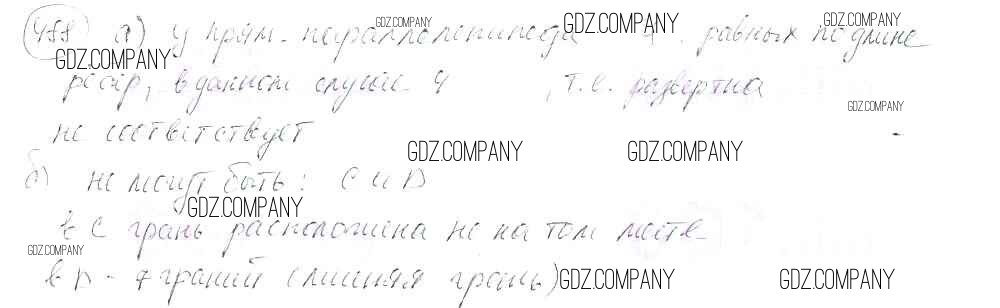 488 а) у прям. параллелепипеда 4 равных по длине
ребр, в данном случае 4 , т.е. развертка
не соответствует
б) не могут быть: С и D
в С грань расположена не на том месте
в D - 7 граний (лишняя грань)
GDZ.COMPANY
GDZ.COMPANY
GDZ.COMPANY
GDZ.COMPANY
GDZ.COMPANY
GDZ.COMPANY
GDZ.COMPANY
GDZ.COMPANY
GDZ.COMPANY
GDZ.COMPANY
GDZ.COMPANY